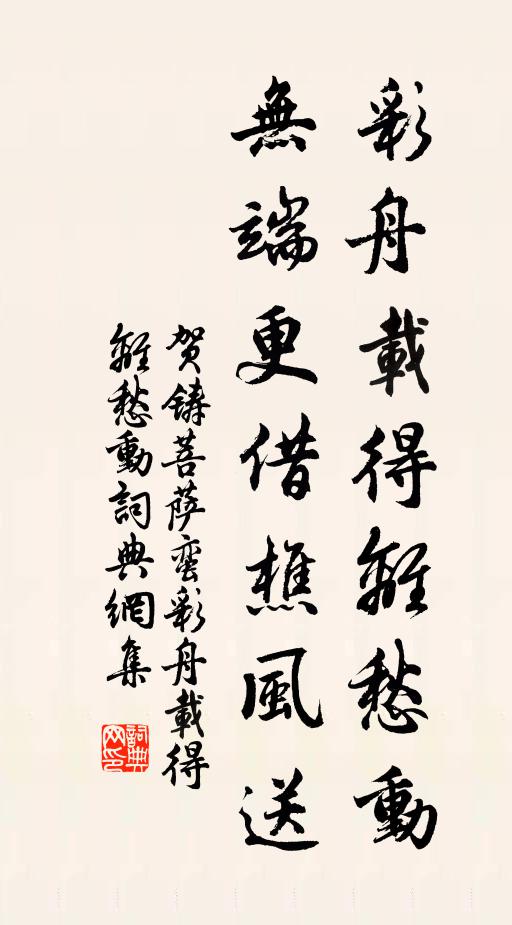 彩舟載得離愁動
無端更借樵風送
賀鑄菩薩蠻彩舟載得
離愁動詞典網集
詞典網印